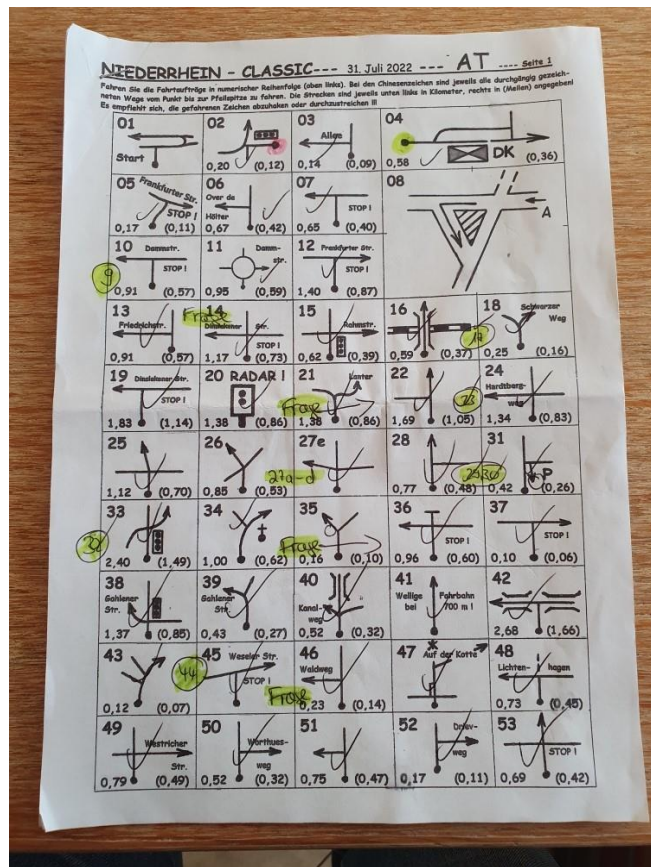 NIEDERRHEIN - CLASSIC--- 31. Juli 2022 --- AT ---- Seite 1
Fahren Sie die Fahrtaufträge in numerischer Reihenfolge (oben links). Bei den Chinesenzeichen sind jeweils alle durchgängig gezeich-
neten Wege vom Punkt bis zur Pfeilspitze zu fahren. Die Strecken sind jeweils unten links in Kilometer, rechts in (Meilen) angegeben!
Es empfiehlt sich, die gefahrenen Zeichen abzuhaken oder durchzustreichen !!!
01
Start
02
0,20 (0,12)
03
Allee
0,14 (0,09)
04
DK
0,58 (0,36)
05 Frankfurter Str.
STOP !
0,17 (0,11)
06
Over de
Hölter
0,67 (0,42)
07
STOP !
0,65 (0,40)
08
A
9
10 Dammstr.
STOP !
0,91 (0,57)
11 Damm-
str.
0,95 (0,59)
12 Frankfurter Str.
STOP !
1,40 (0,87)
13
Friedrichstr.
0,91 (0,57)
Frage
14
Dinslakener Str.
STOP !
1,17 (0,73)
15
Rahmstr.
0,62 (0,39)
16
0,59 (0,37)
17
18
Schwarzer
Weg
0,25 (0,16)
19 Dinslakener Str.
STOP !
1,83 (1,14)
20 RADAR !
1,38 (0,86)
Frage
21
Kanter
1,38 (0,86)
22
1,69 (1,05)
23
24
Hardtberg-
weg
1,34 (0,83)
25
1,12 (0,70)
26
0,85 (0,53)
27a-d
27e
28
0,77 (0,48)
31
P
0,42 (0,26)
32
33
2,40 (1,49)
34
1,00 (0,62)
Frage
35
0,16 (0,10)
36
STOP !
0,96 (0,60)
37
STOP !
0,10 (0,06)
38
Gahlener
Str.
1,37 (0,85)
39
Gahlener
Str.
0,43 (0,27)
40
Kanal-
weg
0,52 (0,32)
41
Wellige Fahrbahn
bei 700 m !
42
2,68 (1,66)
43
0,12 (0,07)
44
45 Weseler Str.
STOP !
Frage
46
Waldweg
0,23 (0,14)
47
Auf der Kotte
48
Lichten- hagen
0,73 (0,45)
49
Westricher
Str.
0,79 (0,49)
50
Worthues-
weg
0,52 (0,32)
51
0,75 (0,47)
52
weg
0,17 (0,11)
53
STOP !
0,69 (0,42)